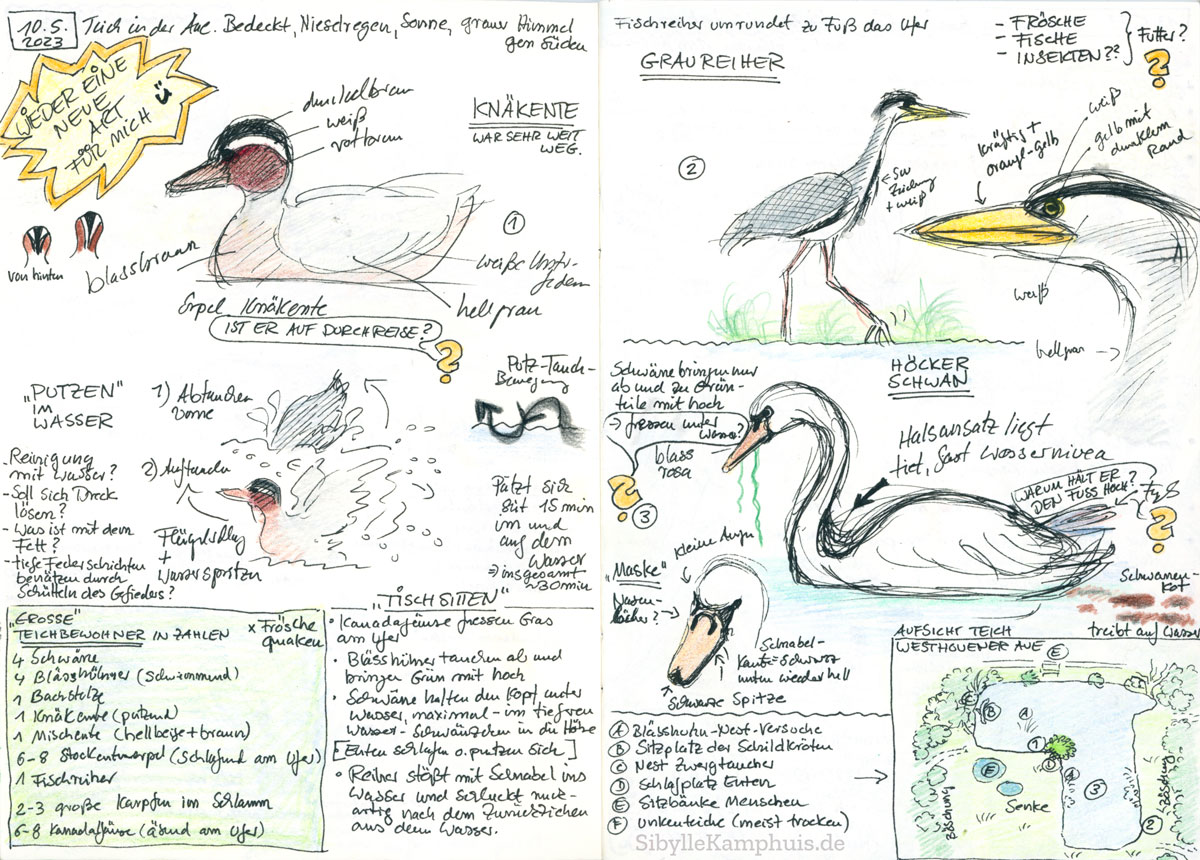 10.5.
2023
Teich in der Aue. Bedeckt, Niesdregen, Sonne, grauer Himmel
gen Süden
WIEDER EINE
NEUE
ART
FÜR MICH
dunkelbraun
weiß
rotbraun
KNÄKENTE
WAR SEHR WEIT
WEG.
1
von hinten
blassbraun
weiße
hellgrau
Erpel Knäkente
IST ER AUF DURCHREISE?
?
"PUTZEN"
IM
WASSER
1) Abtauchen
vorne
2) Auftauchen
Flügelschlag
+
Wasserspritzen
Putz-Tauch-
Bewegung
- Reinigung
mit Wasser?
- Soll sich Dreck
lösen?
- Was ist mit dem
Fett?
- tiefe Federschichten
benätzen durch
Schütteln des Gefieders?
Putzt sich
seit 15 min
im und
auf dem
Wasser
⇒ insgesamt
~30 min
"GROSSE"
TEICHBEWOHNER IN ZAHLEN
x Frösche
quaken
4 Schwäne
4 Blässhühner (schwimmend)
1 Bachstelze
1 Knäkente (putzend)
1 Mischente (hellbeige + braun)
6-8 Stockentenerpel (schlafend am Ufer)
1 Fischreiher
2-3 große Karpfen im Schlamm
6-8 Kanadagänse (äsend am Ufer)
"TISCHSITTEN"
• Kanadagänse fressen Gras
am Ufer
• Blässhühner tauchen ab und
bringen Grün mit hoch
• Schwäne halten den Kopf unter
Wasser, maximal - im tiefren
Wasser - Schwänzchen in die Höhe
[Enten schlafen o. putzen sich]
• Reiher stößt mit Schnabel ins
Wasser und schluckt ruck-
artig nach dem Zurückziehen
aus dem Wasser.
Fischreiher umrundet zu Fuß das Ufer
GRAUREIHER
- FRÖSCHE
- FISCHE
- INSEKTEN??
Futter?
?
2
kräftig +
orange-gelb
weiß
gelb mit
dunklem
Rand
SW
Zeichnung
+ weiß
weiß
hellgrau
Schwäne bringen nur
ab und zu Grün-
teile mit hoch
⇒ fressen unter
Wasser?
?
3
blass
rosa
HÖCKER
SCHWAN
Halsansatz liegt
tief, fast Wasserniveau
WARUM HÄLT ER
DEN FUSS HOCH?
Fuß
?
"Maske"
kleine Augen
Nasen-
löcher?
Schnabel-
kante = schwarz
unten wieder hell
schwarze Spitze
Schwanen-
Kot
treibt auf Wasser
A Blässhuhn-Nest-Versuche
B Sitzplatz der Schildkröten
C Nest Zwergtaucher
D Schlafplatz Enten
E Sitzbänke Menschen
F Unkenteiche (meist trocken)
AUFSICHT TEICH
WESTHOVENER AUE
E
B
A
1
D
3
2
Senke
Böschung
Böschung
SibylleKamphuis.de